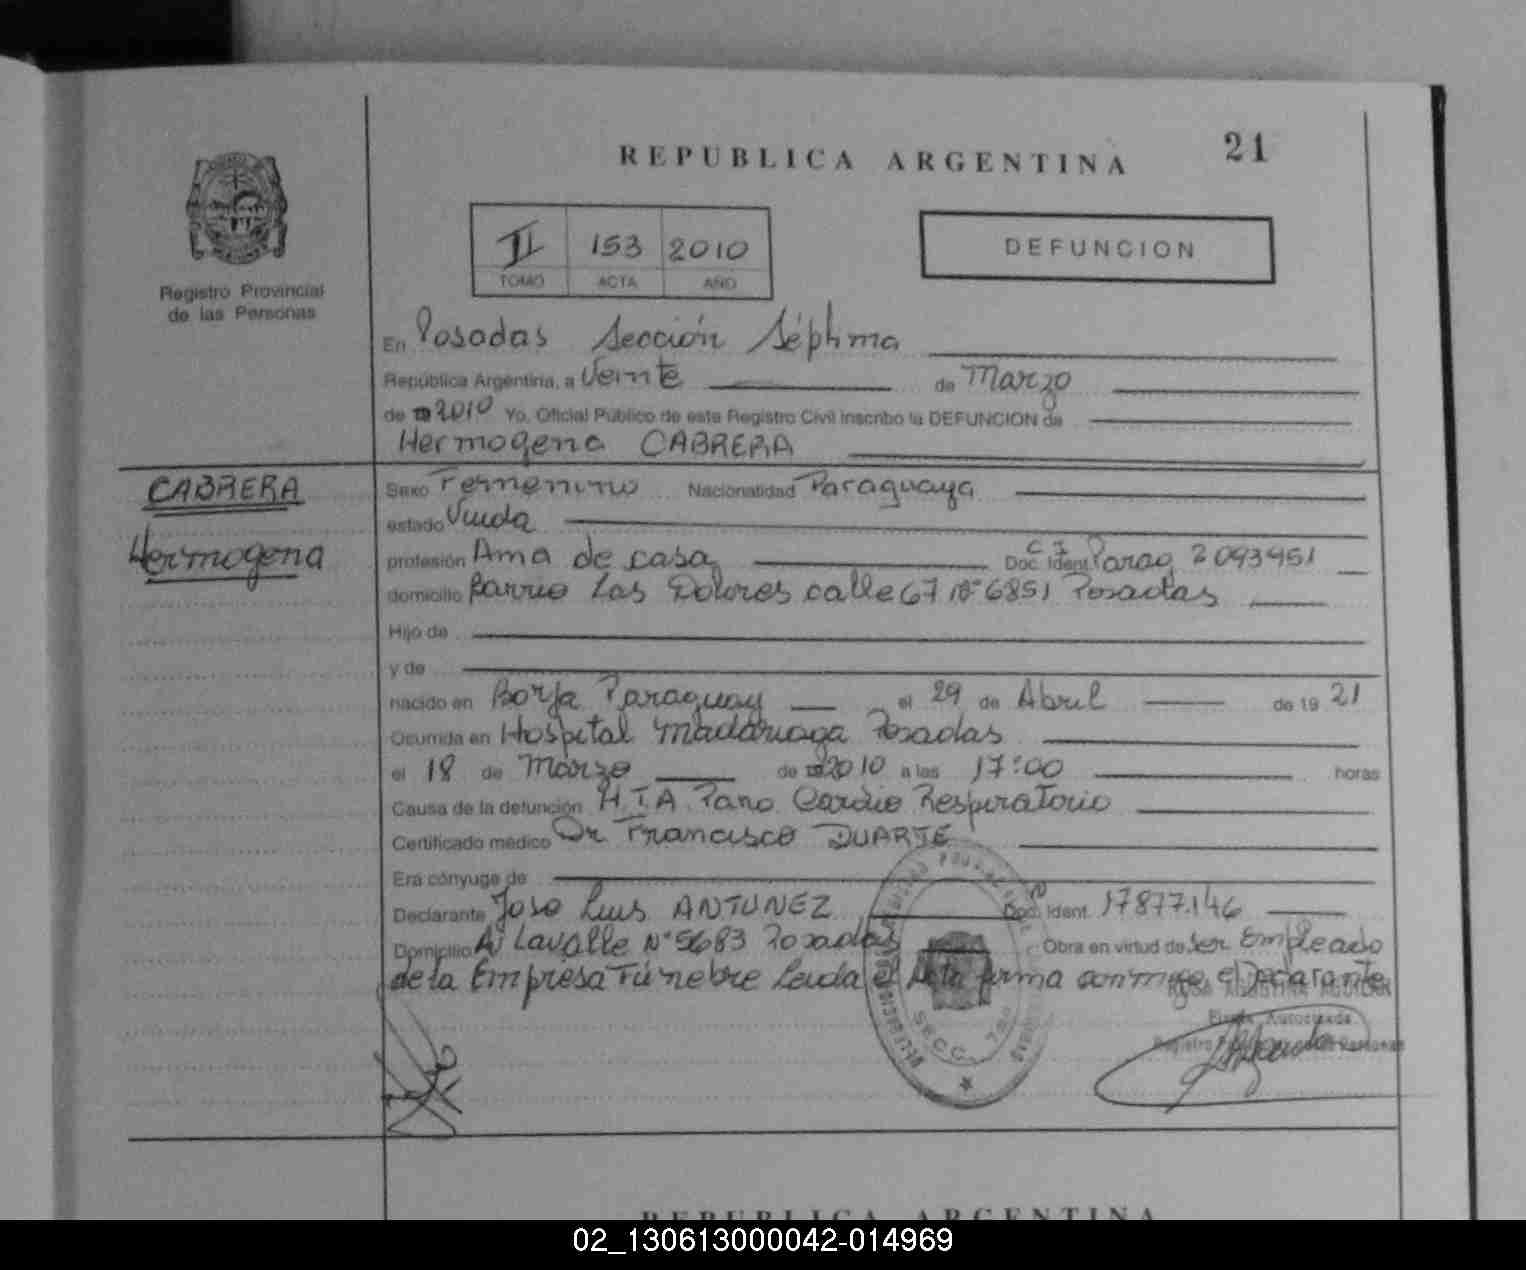 REPUBLICA ARGENTINA
21
Registro Provincial
de las Personas
II 153 2010
TOMO ACTA AÑO
DEFUNCION
En Posadas Sección Séptima
República Argentina, a Veinte de Marzo
de 2010 Yo, Oficial Público de este Registro Civil inscribo la DEFUNCION de
Hermogena CABRERA
CABRERA
Hermogena
Sexo Femenino Nacionalidad Paraguaya
estado Viuda
profesión Ama de casa Doc. Ident. C I Parag 2093951
domicilio Barrio Los Dolores calle 67 Nº 6851 Posadas
Hijo de
y de
nacido en Borja Paraguay el 29 de Abril de 19 21
Ocurrida en Hospital Madariaga Posadas
el 18 de Marzo de 2010 a las 17:00 horas
Causa de la defunción H.T.A. Paro Cardio Respiratorio
Certificado médico Dr Francisco DUARTE
Era cónyuge de
Declarante Jose Luis ANTUNEZ Doc. Ident. 17877.146
Domicilio Av Lavalle Nº 5683 Posadas Obra en virtud de ser Empleado
de la Empresa Fúnebre Leida el Acta firma conmigo el Declarante
ROSA AGUSTINA AGUILAR
Firma Autorizada
Registro Personas
SECC. 7ma
REPUBLICA ARGENTINA
02_130613000042-014969